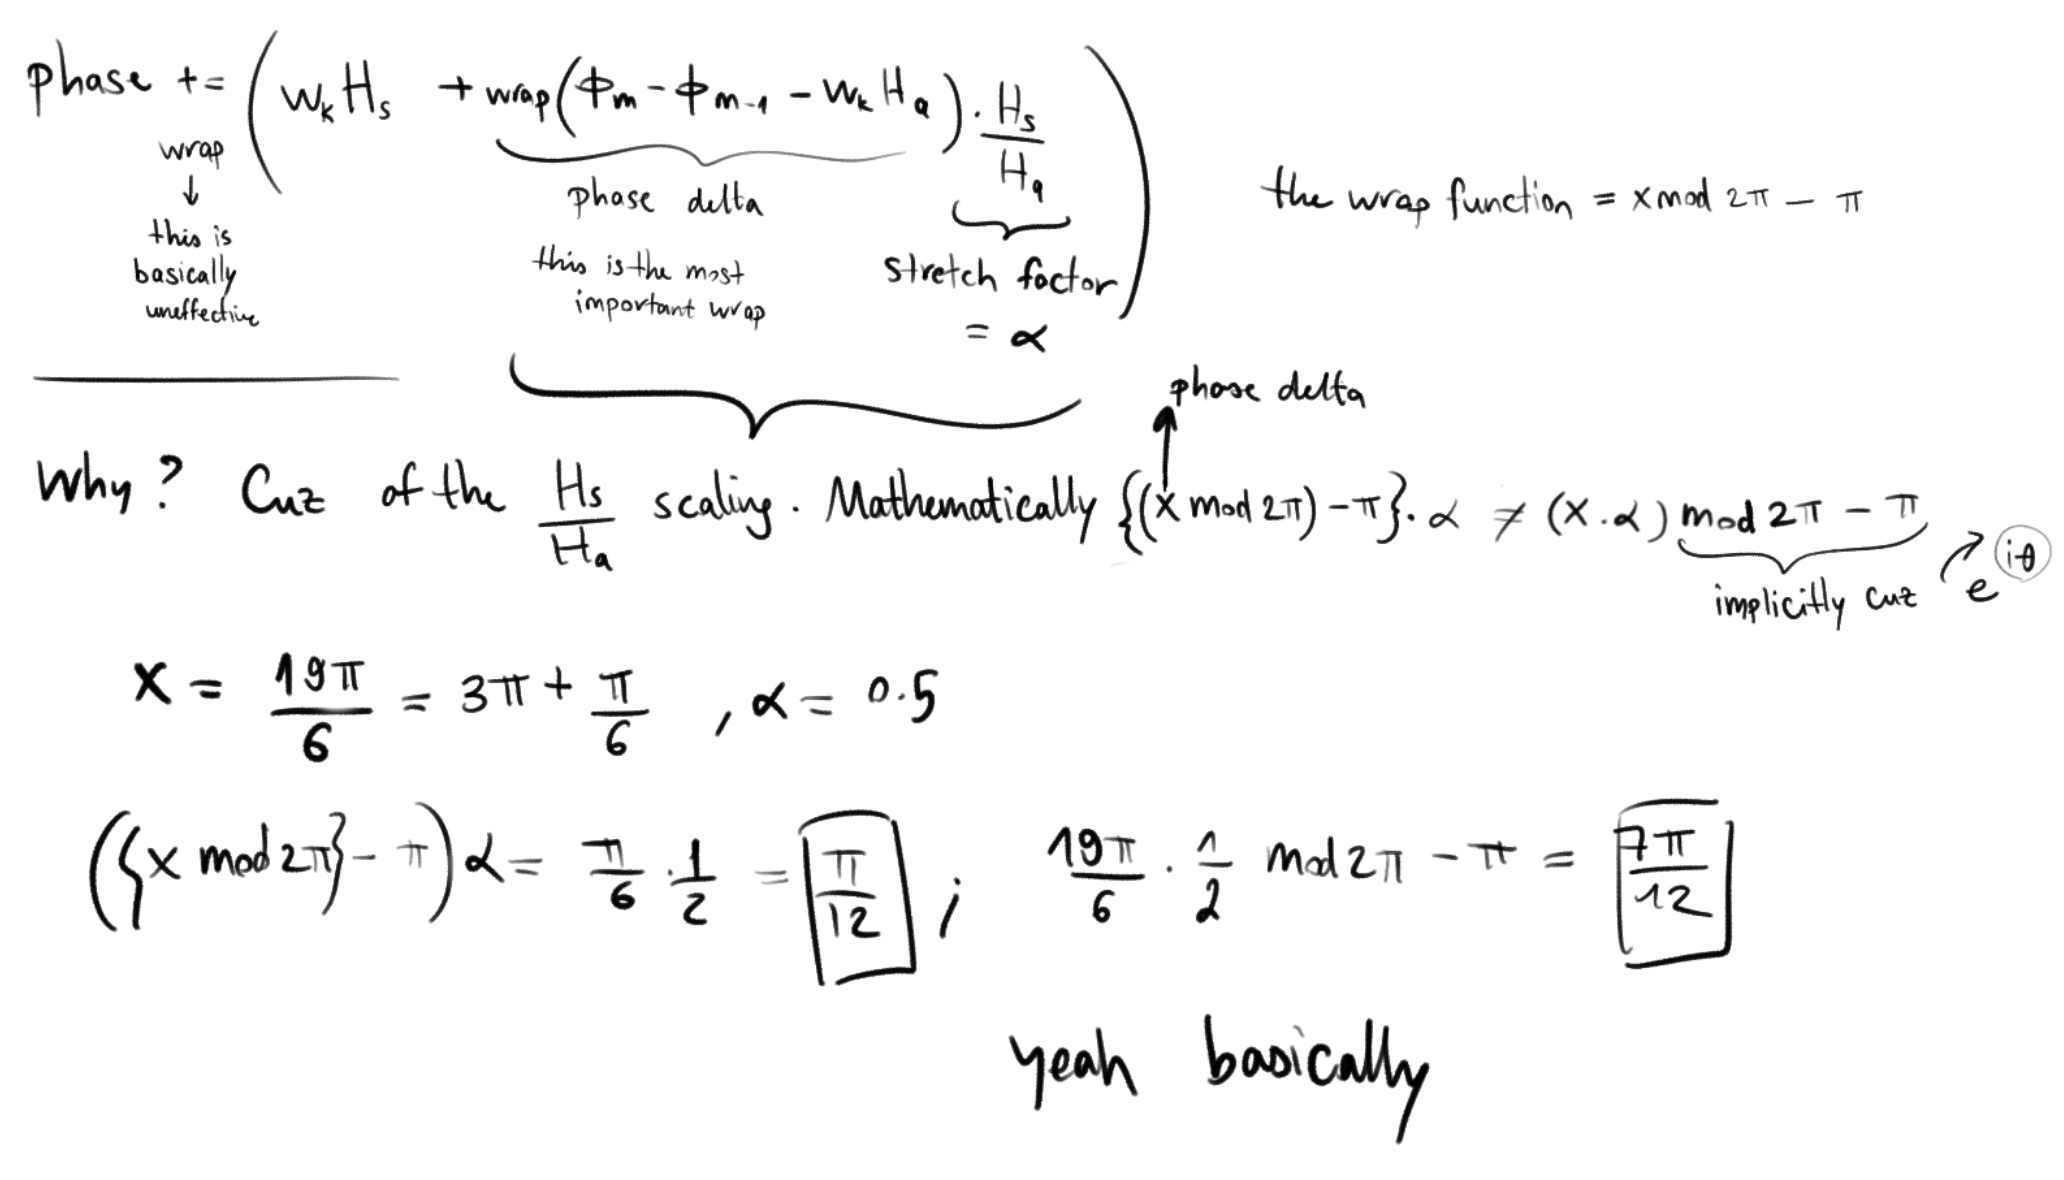 phase += ( w_k H_s + wrap( ϕ_m - ϕ_m-1 - w_k H_a ) . H_s / H_a )
wrap
↓
this is
basically
uneffective
phase delta
this is the most
important wrap
stretch factor
= α
the wrap function = x mod 2π - π
phase delta
Why? Cuz of the H_s / H_a scaling. Mathematically {(x mod 2π) - π}. α ≠ (x . α) mod 2π - π
implicitly cuz e^iθ
x = 19π / 6 = 3π + π / 6 , α = 0.5
({x mod 2π} - π) α = π / 6 . 1 / 2 = π / 12 ; 19π / 6 . 1 / 2 mod 2π - π = 7π / 12
yeah basically